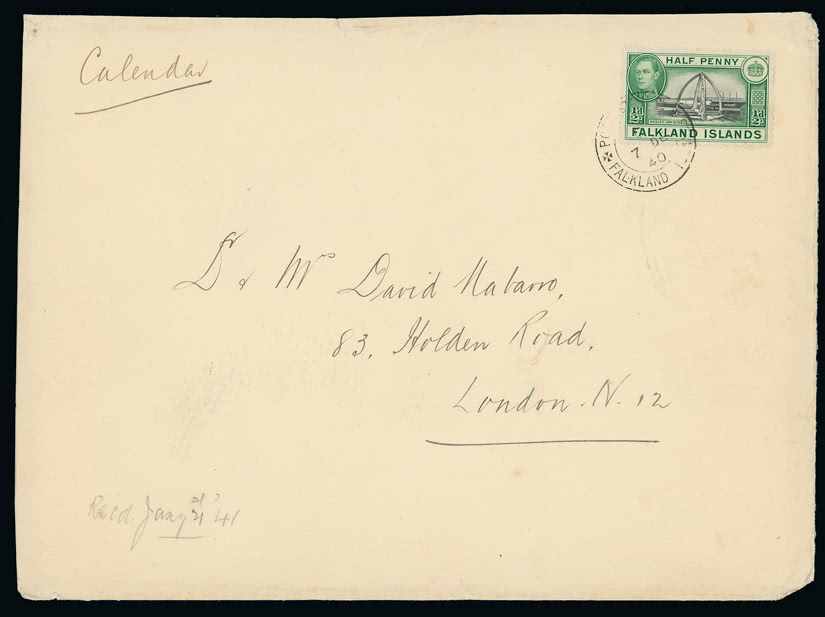 Calendar
HALF PENNY
½d ½d
FALKLAND ISLANDS
7 DE
40
FALKLAND
Dr & Mrs David Nabarro,
83, Holden Road,
London. N. 12
Recd. Jany 21 '41